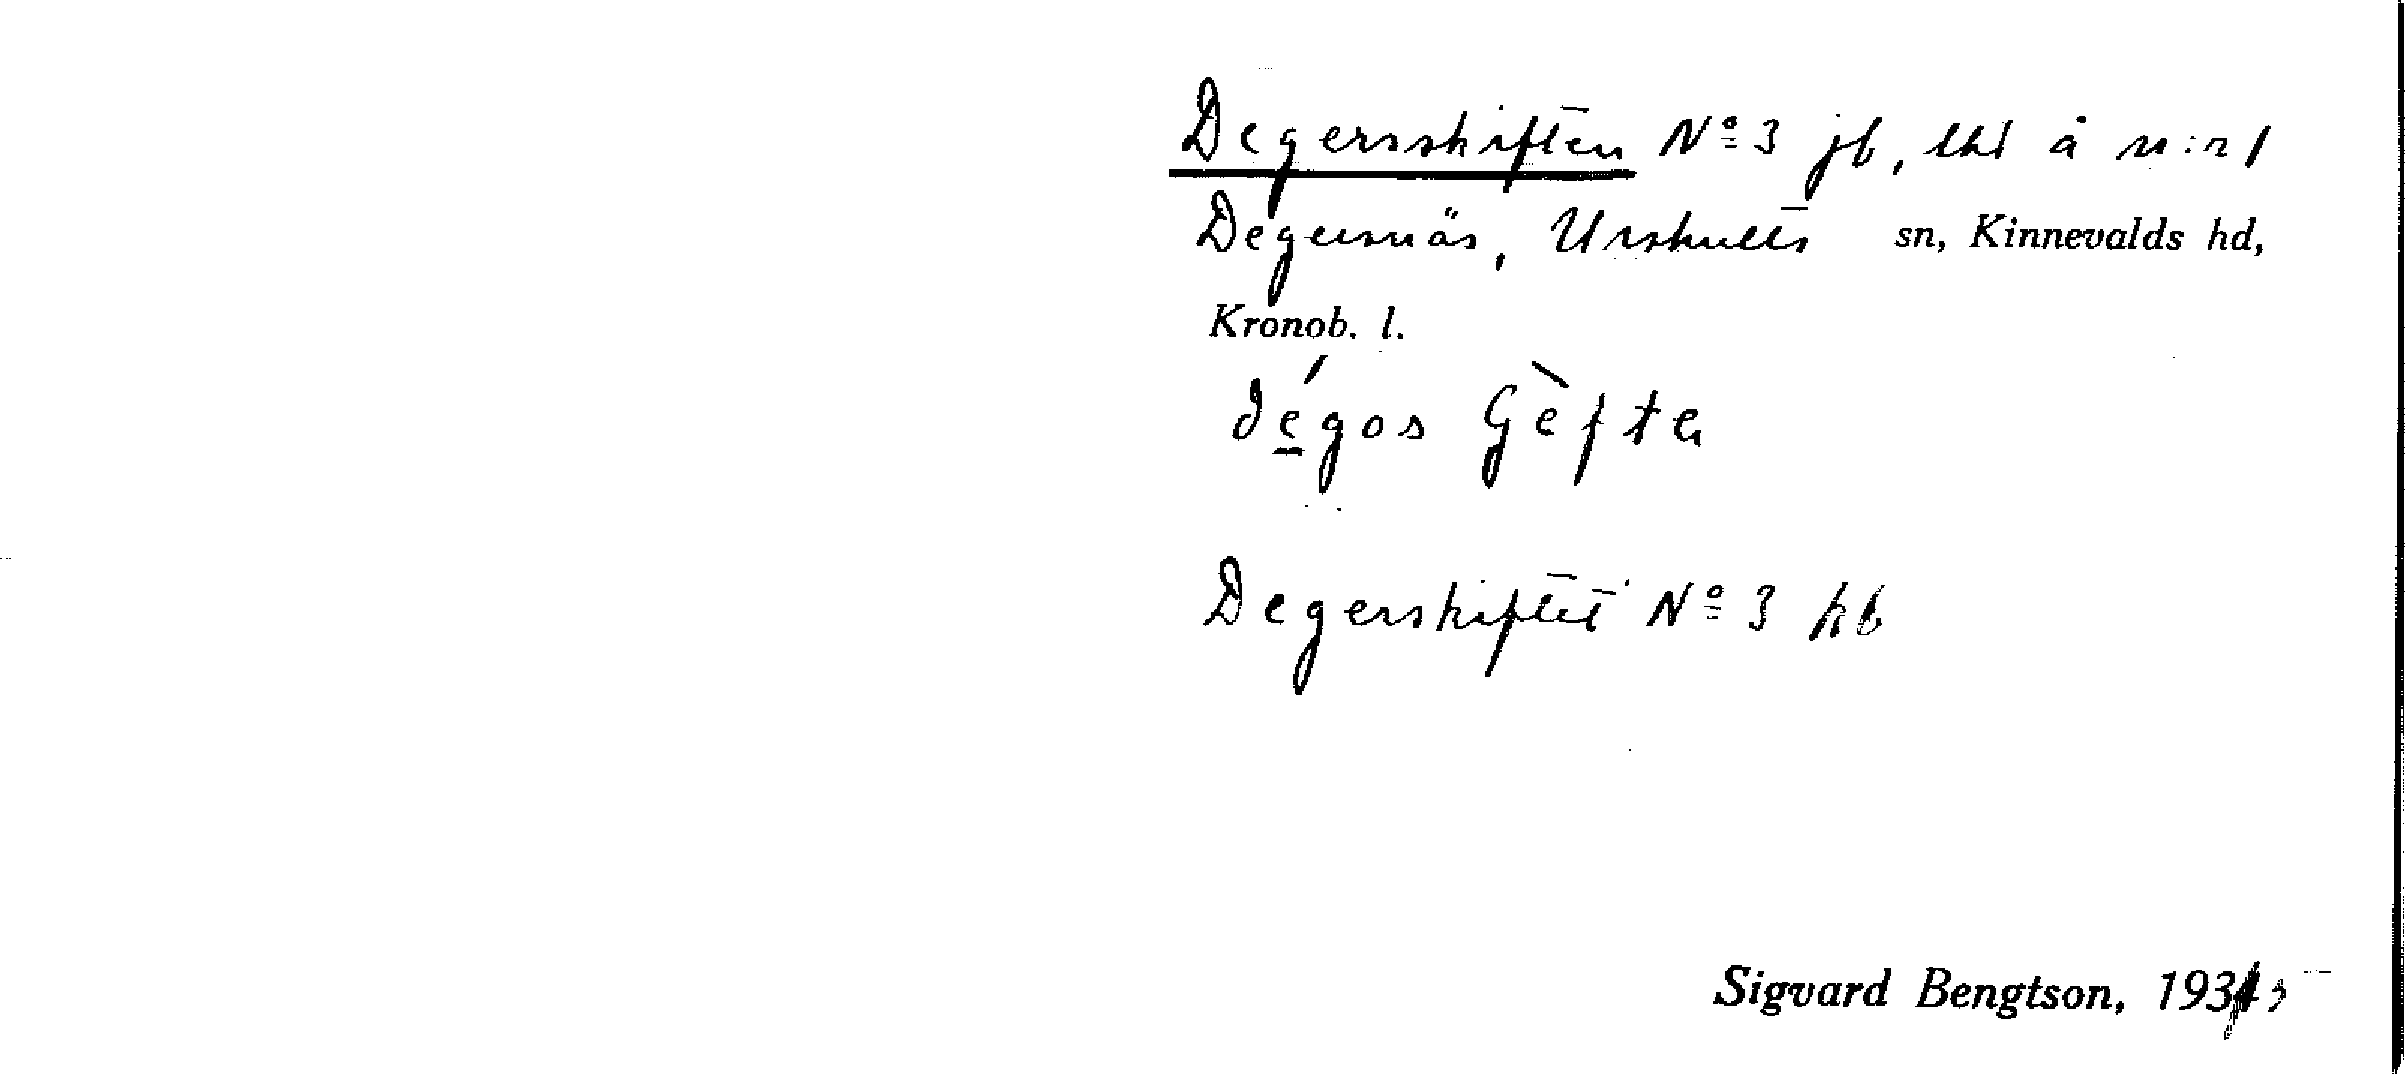 Degersskiften Nº 3 jb, lht å n:r 1
Degersnäs, Urshults sn, Kinnevalds hd,
Kronob. l.
Degerskiftet Nº 3 kb
Sigvard Bengtson, 193